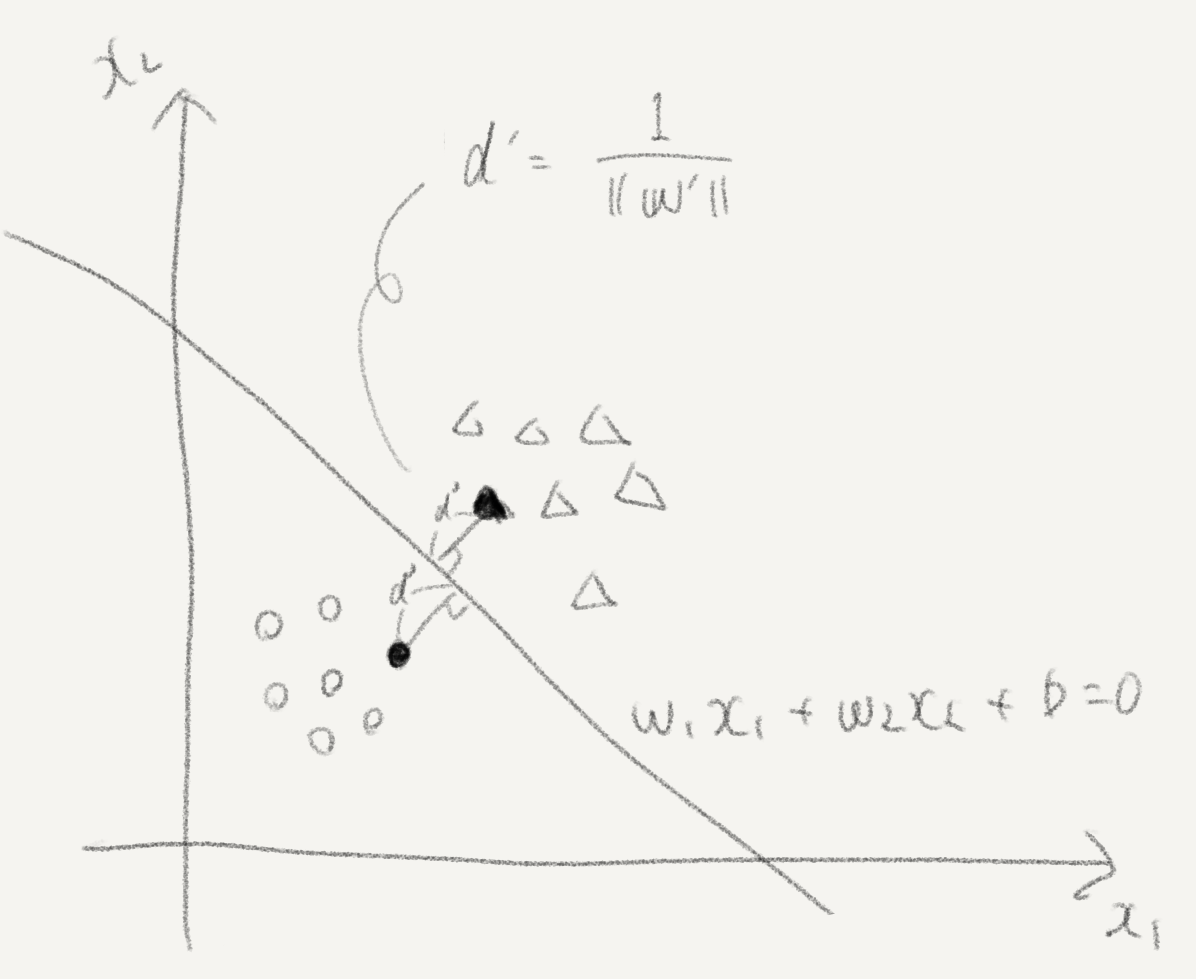 x₂
d' = 1 / ||w'||
d'
d'
w₁x₁ + w₂x₂ + b = 0
x₁